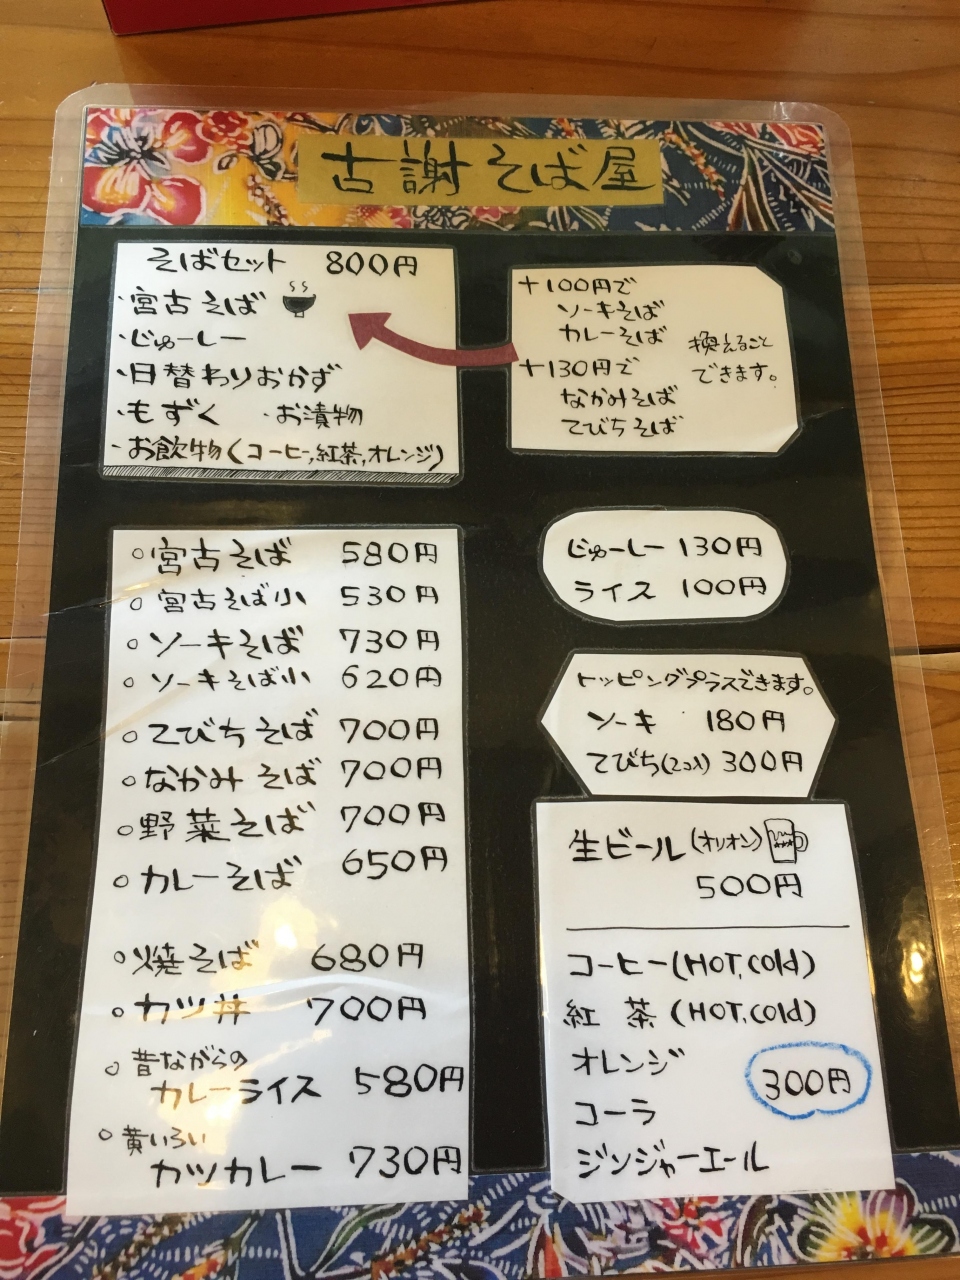 古謝そば屋
そばセット 800円
・宮古そば
・じゅーしー
・日替わりおかず
・もずく ・お漬物
・お飲物(コーヒー,紅茶,オレンジ)
+100円で
ソーキそば
カレーそば
+130円で
なかみそば
てびちそば
換えること
できます。
○宮古そば 580円
○宮古そば小 530円
○ソーキそば 730円
○ソーキそば小 620円
○てびちそば 700円
○なかみそば 700円
○野菜そば 700円
○カレーそば 650円
○焼そば 680円
○カツ丼 700円
○昔ながらの
カレーライス 580円
○黄いろい
カツカレー 730円
じゅーしー 130円
ライス 100円
トッピングプラスできます。
ソーキ 180円
てびち(2コ入) 300円
生ビール(オリオン)
500円
コーヒー(HOT,cold)
紅茶(HOT,cold)
オレンジ
300円
コーラ
ジンジャーエール